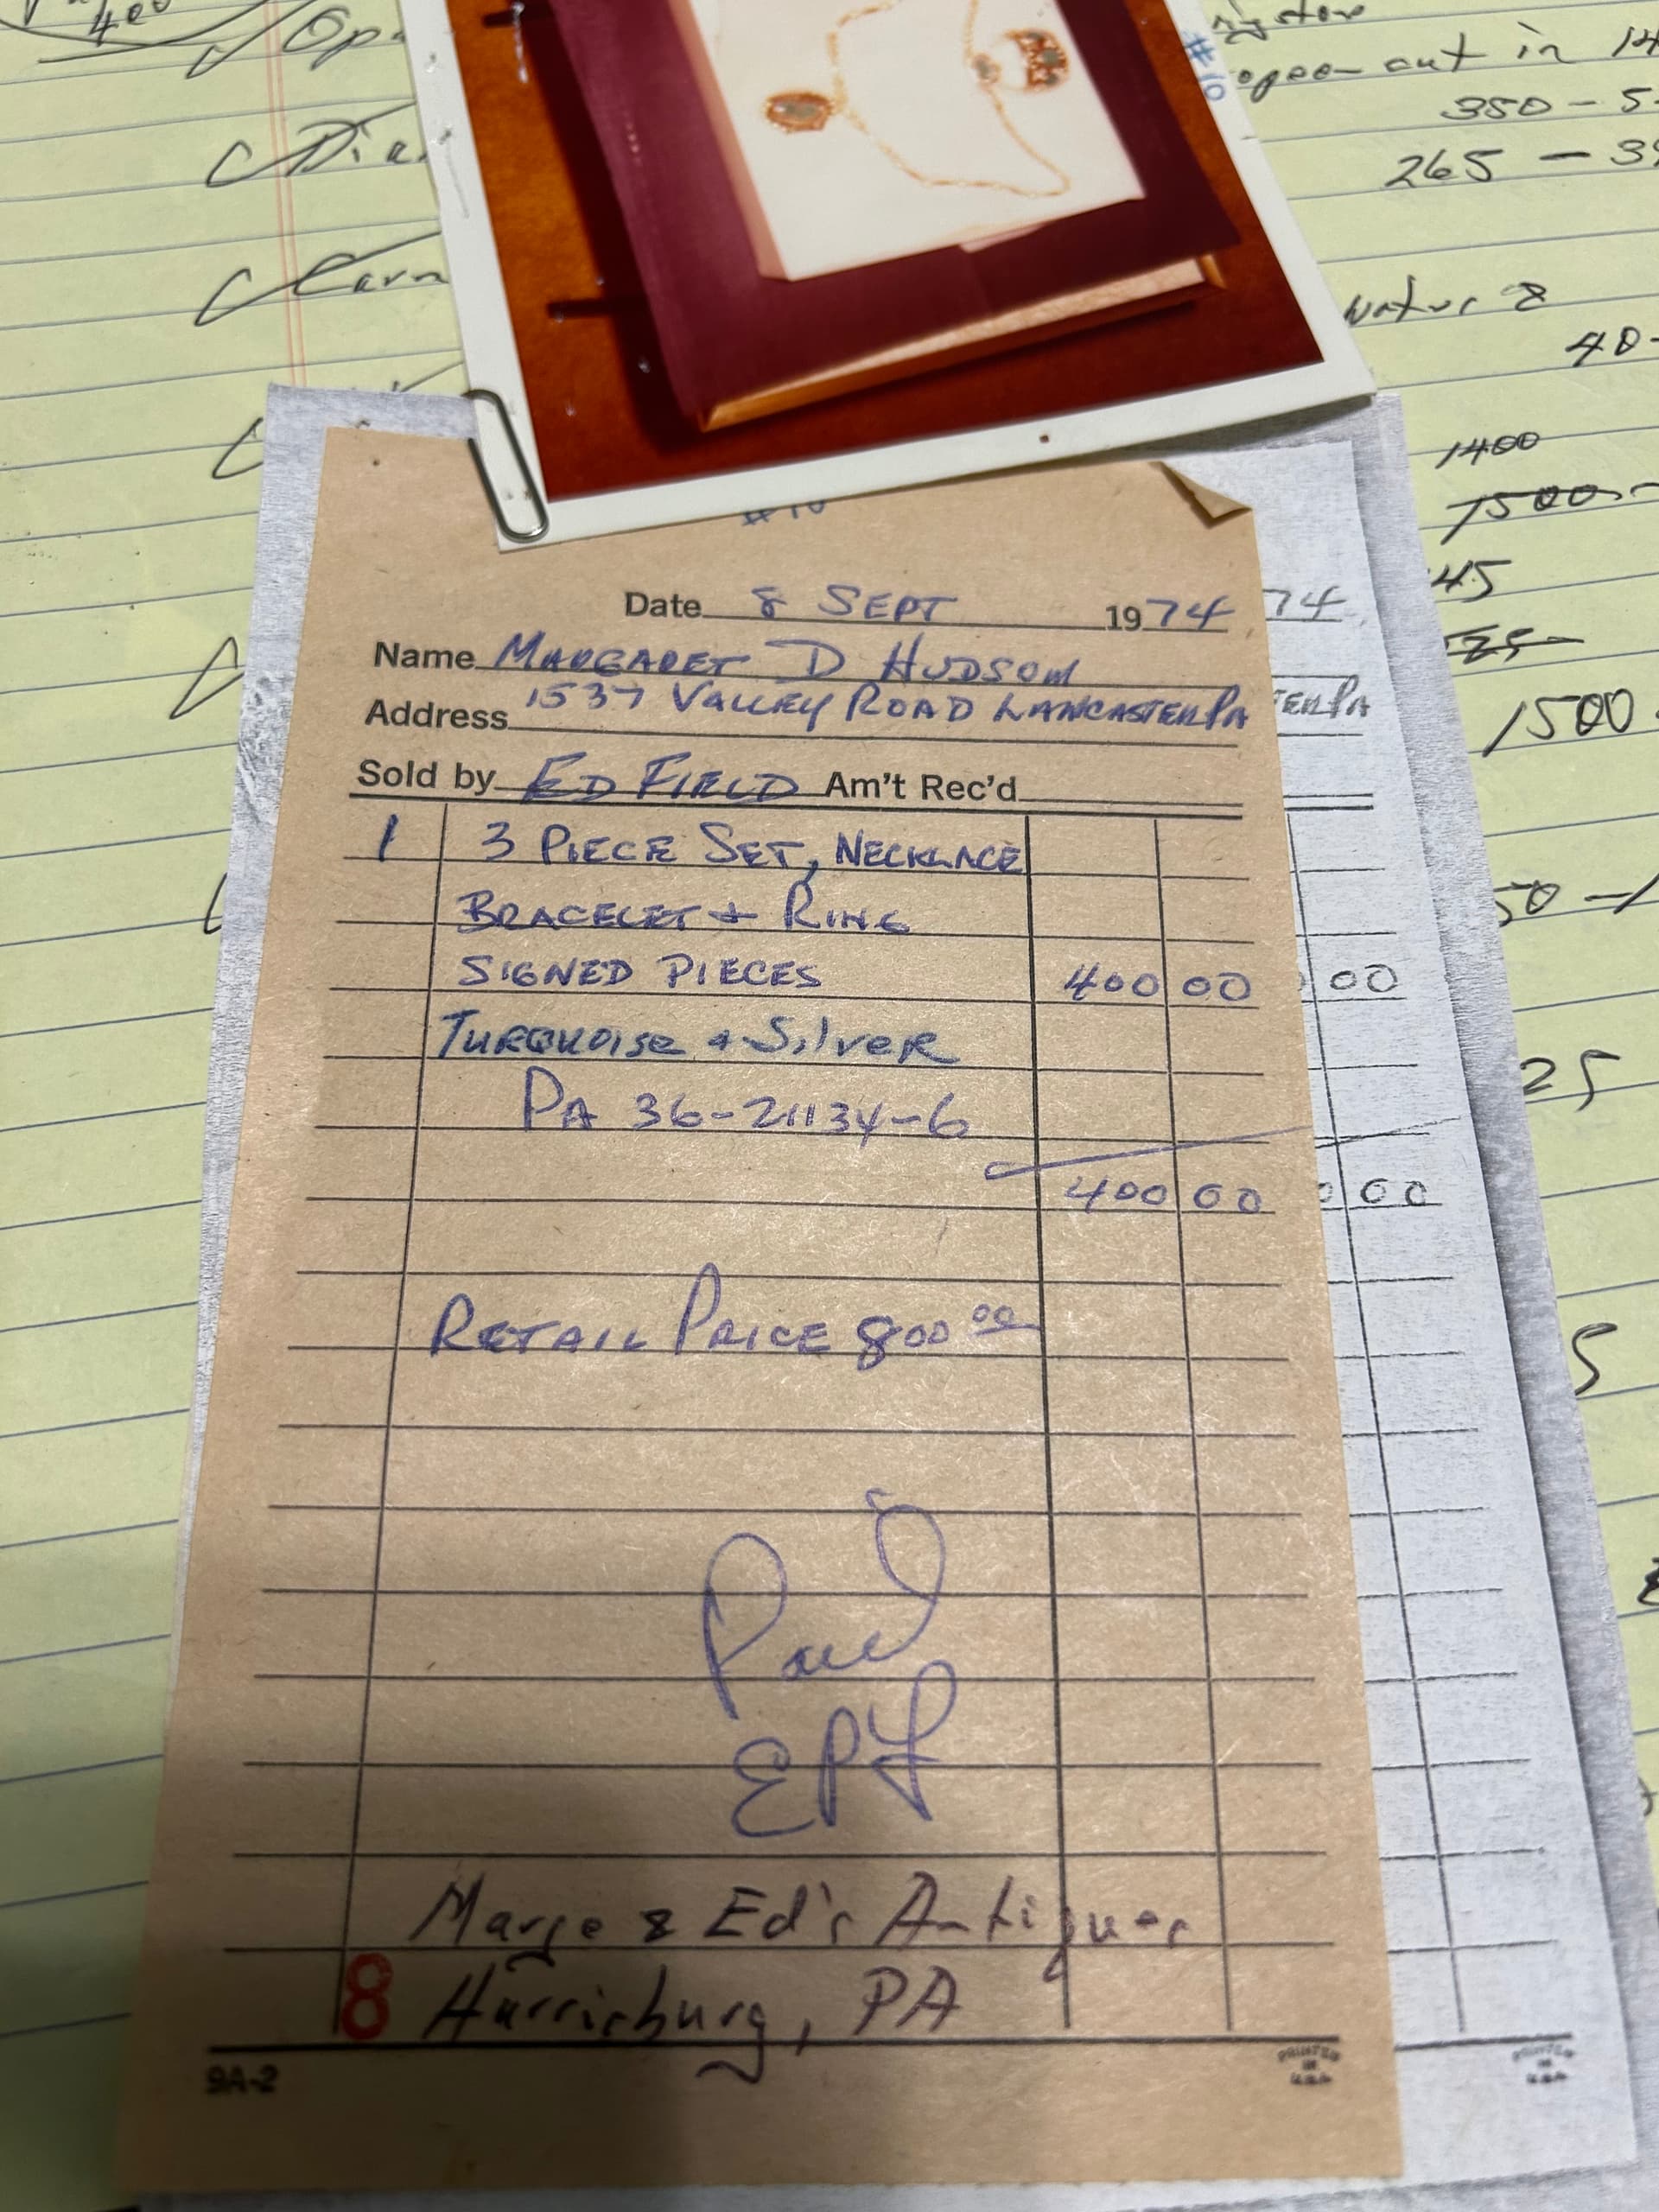 400
Op
ngston
open cut in 14
350 - 5
265 - 39
#10
Natur 8
40-
1400
1500-
45
525
1500
50 - 1
25
5
#10
Date 8 SEPT 1974
74
Name MARGARET D HUDSON
Address 1537 VALLEY ROAD LANCASTER PA
TER PA
Sold by ED FIELD Am't Rec'd
1 3 PIECE SET, NECKLACE
BRACELET + RING
SIGNED PIECES 400 00
00
TURQUOISE + SilveR
PA 36-21134-6
400 00
0 00
RETAIL PRICE 800 00
Paid
EPF
Marge & Ed's Antiques
8 Harrisburg, PA
9A-2
PRINTED
IN
U.S.A.
PRINTED
IN
U.S.A.